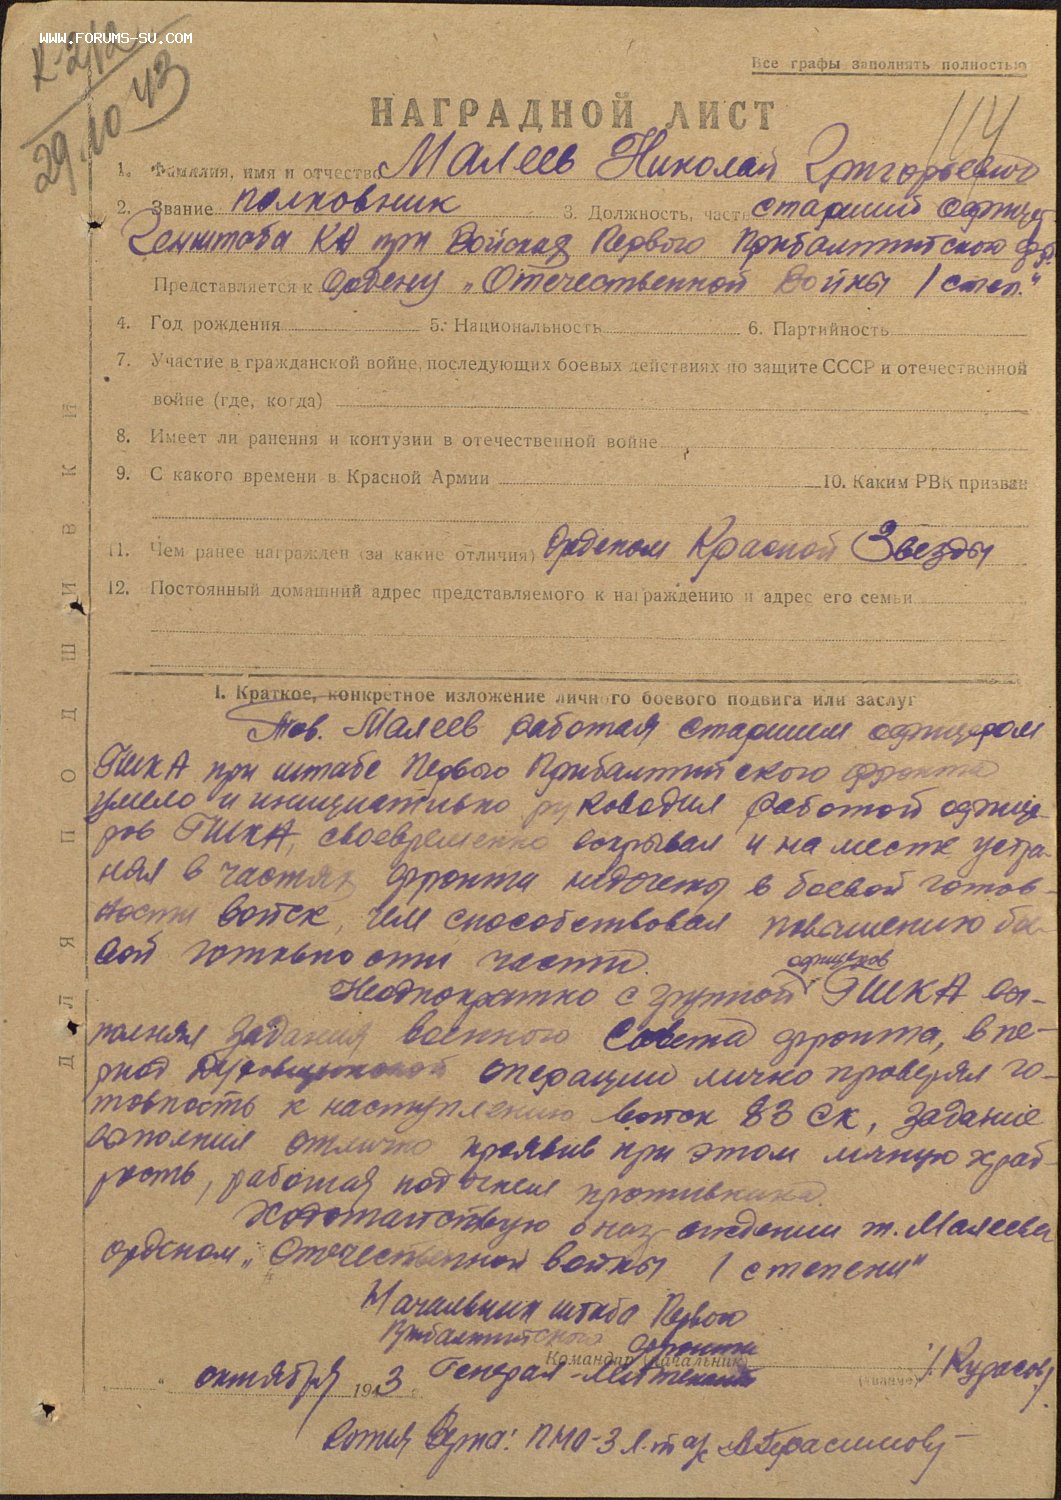 WWW.FORUMS-SU.COM
К-212
29.10 43
Все графы заполнять полностью
114
НАГРАДНОЙ ЛИСТ
1. Фамилия, имя и отчество Малеев Николай Григорьевич
2. Звание полковник 3. Должность, часть старший офицер
Генштаба КА при Войсках Первого Прибалтийского фр.
Представляется к Ордену „Отечественной Войны 1 степ."
4. Год рождения 5. Национальность 6. Партийность
7. Участие в гражданской войне, последующих боевых действиях по защите СССР и отечественной
войне (где, когда)
8. Имеет ли ранения и контузии в отечественной войне
9. С какого времени в Красной Армии 10. Каким РВК призван
11. Чем ранее награжден (за какие отличия) Орденом Красной Звезды
12. Постоянный домашний адрес представляемого к награждению и адрес его семьи
ДЛЯ ПОДШИВКИ
I. Краткое, конкретное изложение личного боевого подвига или заслуг
Тов. Малеев работая старшим офицером
ГШКА при штабе Первого Прибалтийского фронта
умело и инициативно руководил работой офице-
ров ГШКА, своевременно вскрывал и на месте устра-
нял в частях фронта недочеты в боевой готов-
ности войск, чем способствовал повышению бое-
вой готовности части.
Неоднократно с группой офицеров ГШКА вы-
полнял задания военного Совета фронта, в пе-
риод Духовщинской операции лично проверял го-
товность к наступлению войск 83 СК, задание
выполнил отлично проявив при этом личную храб-
рость, работая под огнем противника.
Ходатайствую о награждении т. Малеева
орденом „Отечественной войны 1 степени"
Начальник штаба Первого
Прибалтийского фронта
Командир (начальник)
октября 1943 г. Генерал-лейтенант (звание) /Курасов/
Копия верна: ПНО-3 Л-т а/с Герасимов